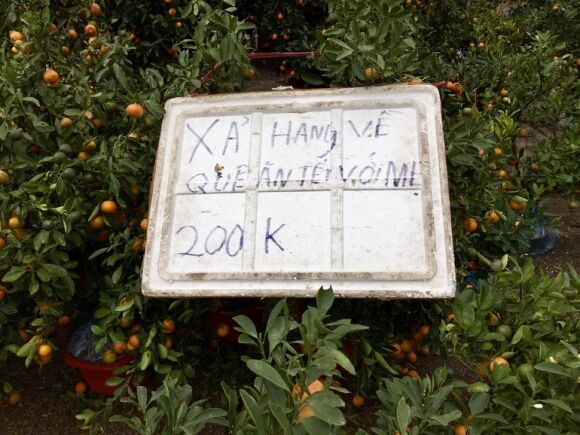 XẢ HANG VỀ
QUE ĂN TẾT VỚI MẸ
200 K